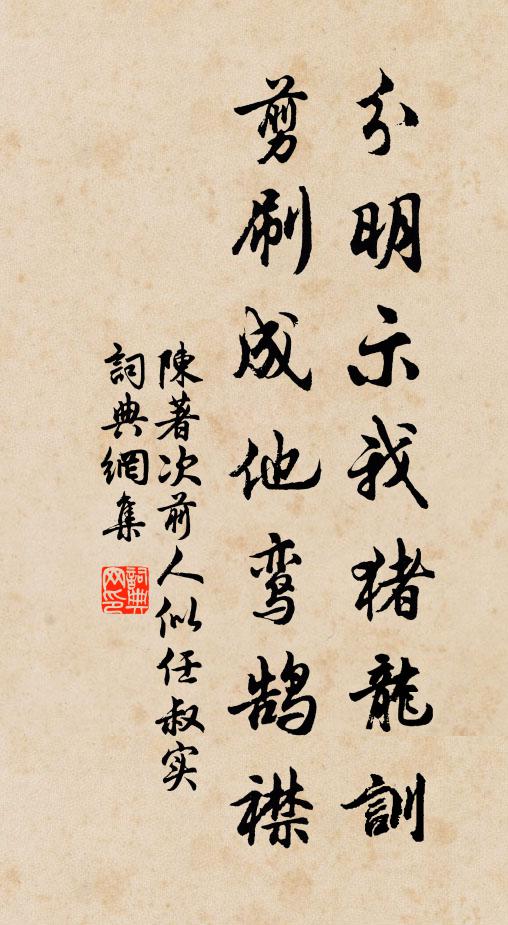 分明示我猪龍訓
剪刷成他鸾鹄襟
陳著次前人似任叔实
詞典網集
詞典网印